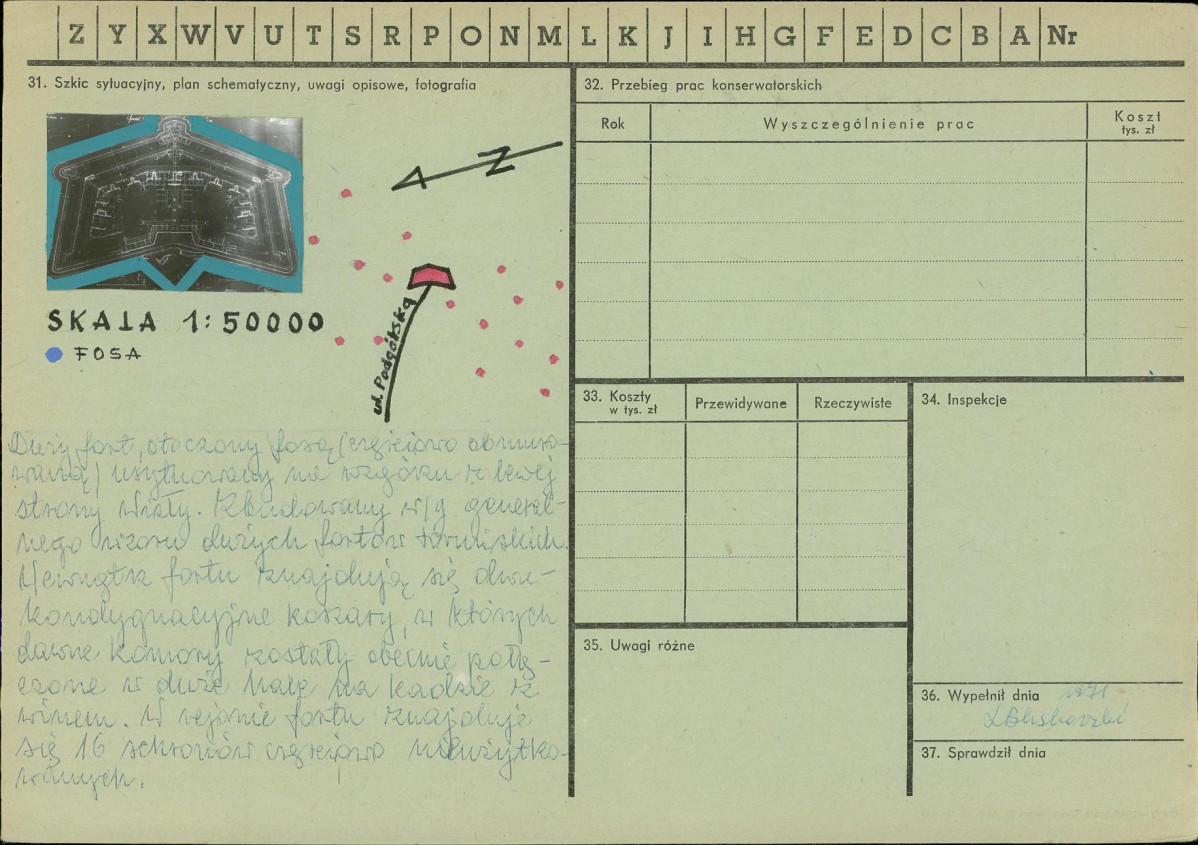 Z Y X W V U T S R P O N M L K J I H G F E D C B A Nr
31. Szkic sytuacyjny, plan schematyczny, uwagi opisowe, fotografia
N
SKALA 1:50000
FOSA
ul. Podgórska
Duży fort, otoczony fosą (częściowo obmuro-
waną) usytuowany na wzgórzu z lewej
strony Wisły. Zbudowany w/g general-
nego wzoru dużych fortów toruńskich.
Wewnątrz fortu znajdują się dwu-
kondygnacyjne koszary, w których
dawne komory zostały obecnie połą-
czone w duże hale na kadzie z
winem. W rejonie fortu znajduje
się 16 schronów częściowo nieużytko-
wanych.
32. Przebieg prac konserwatorskich
Rok
Wyszczególnienie prac
Koszt
tys. zł
33. Koszty
w tys. zł
Przewidywane
Rzeczywiste
34. Inspekcje
35. Uwagi różne
36. Wypełnił dnia 1971
37. Sprawdził dnia